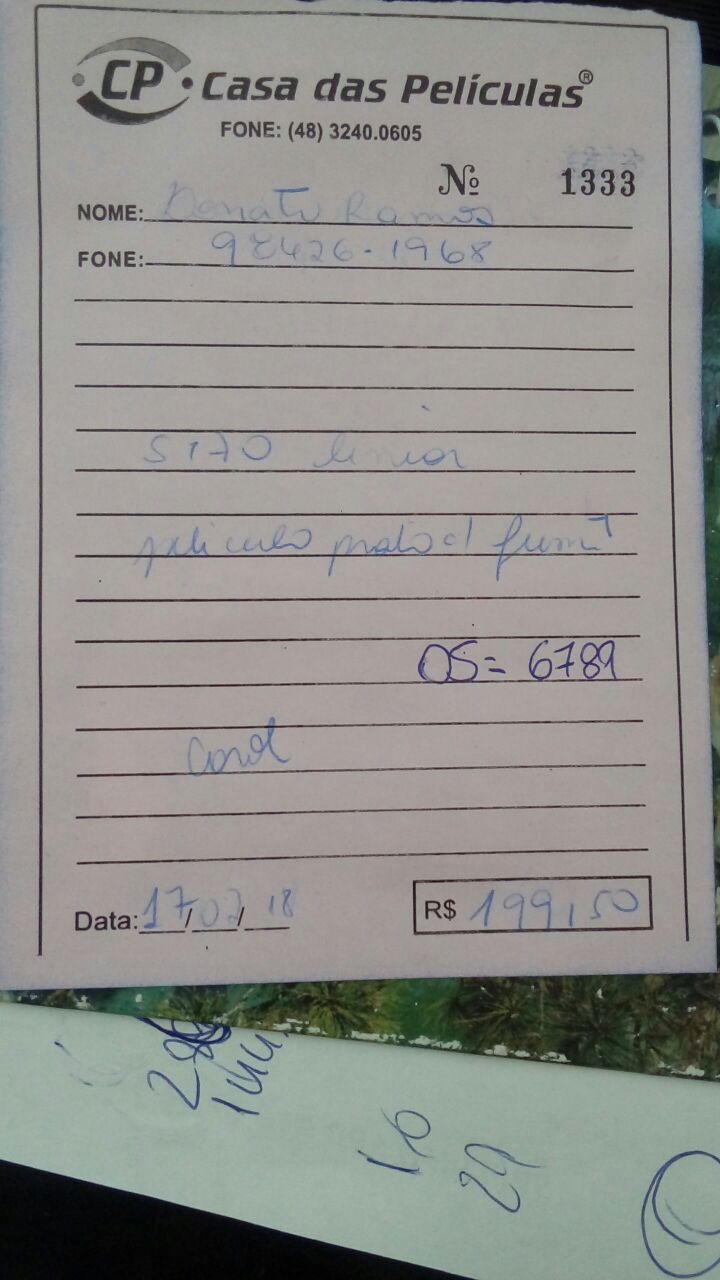 CP Casa das Películas®
FONE: (48) 3240.0605
Nº 1333
NOME: Donato Ramos
FONE: 98426-1968
5170
pelicula prata c/ fumê
OS= 6789
Data: 17/02/18
R$ 199,50
28
144
16
29